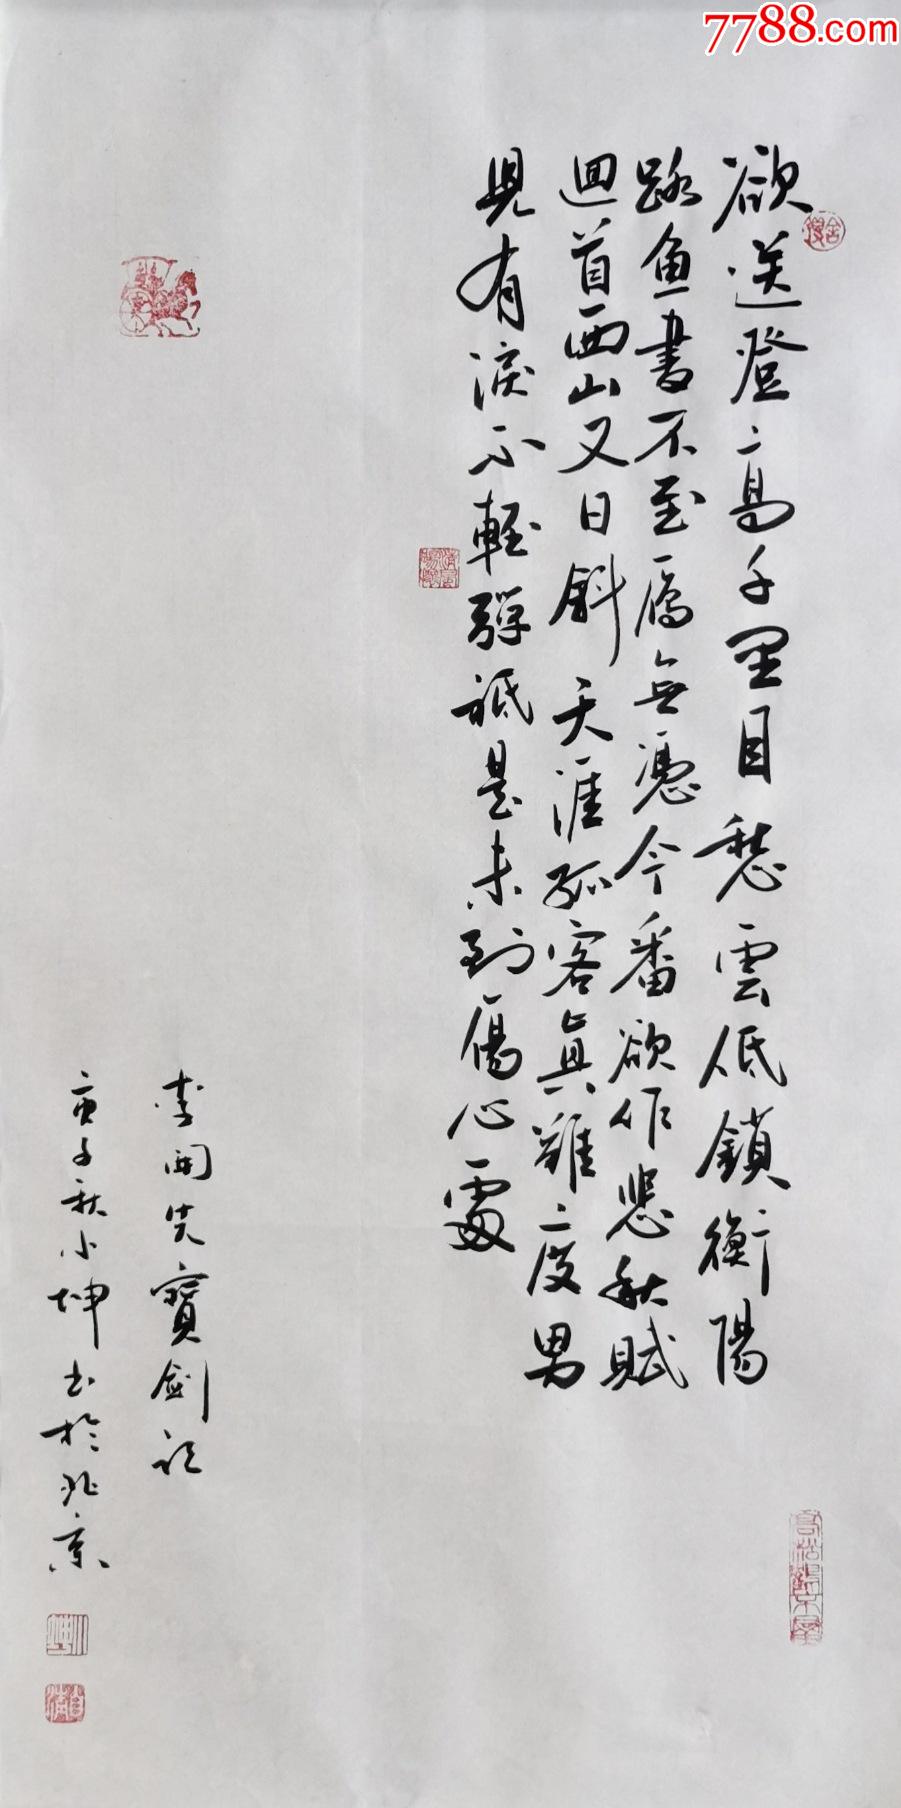 7788.com
欲送登高千里目愁雲低鎖衡陽
路魚書不至雁無憑今番欲作悲秋賦
迴首西山又日斜天涯孤客真難度男
兒有淚不輕彈祇是未到傷心處
李開先寶劍記
庚子秋小坤书於北京